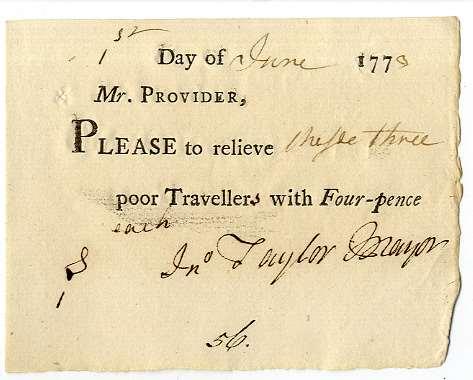 1st Day of June 1778
Mr. PROVIDER,
PLEASE to relieve these three
poor Travellers with Four-pence
each
Jno Taylor Mayor
1
56.